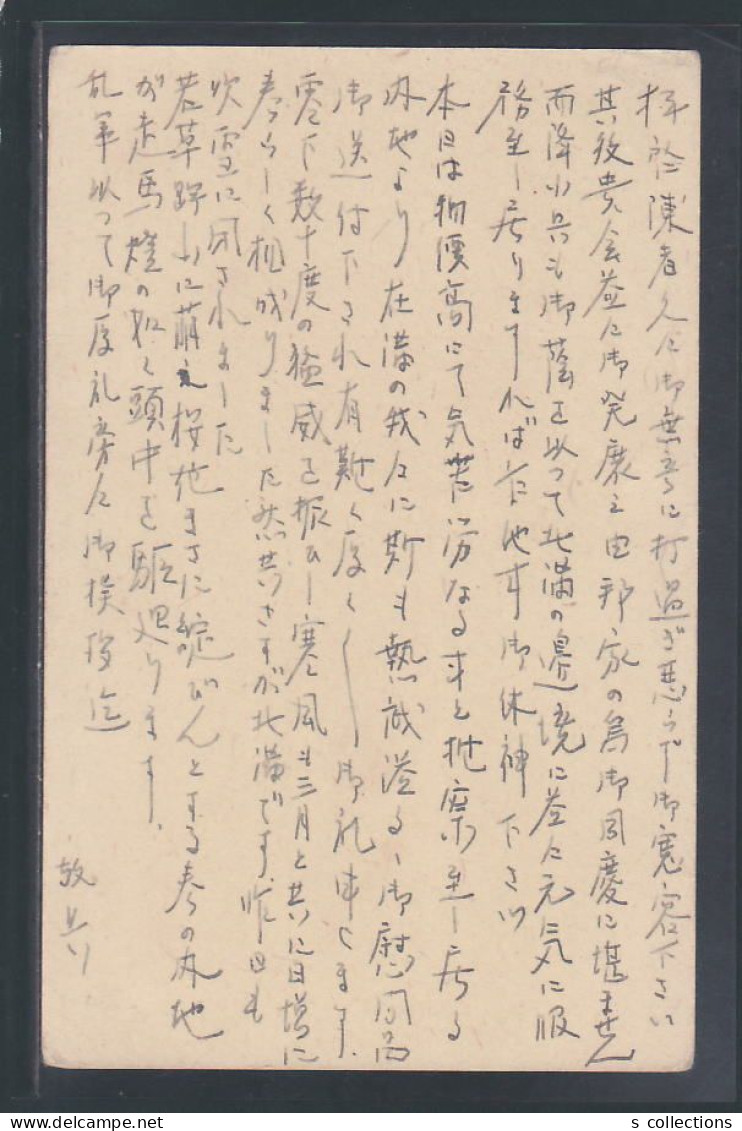 拝啓陳者久に御無音に打過ぎ悪からず御寛容下さい
其後貴会益に御発康之由邦家の為御同慶に堪ません
而降小兵も御蔭を以って北満の邊境に益に元気に服
務至し居りますれば乍他事御休神下さい
本日は物價高にて気苦労なる事と推察至し居る
内地より在満の我々に斯も熱誠溢るゝ御慰問品
御送付下され有難く厚く〱御礼申します
零下数十度の猛威を振ひし寒風も三月と共に日増に
春らしく相成りました然共さすが北満です昨日も
吹雪に閉されました
若草野山に萌え桜花まさに綻びんとする春の内地
が走馬燈の如く頭中を駆廻ります
乱筆以って御厚礼旁々御挨拶迄
敬具
s collections